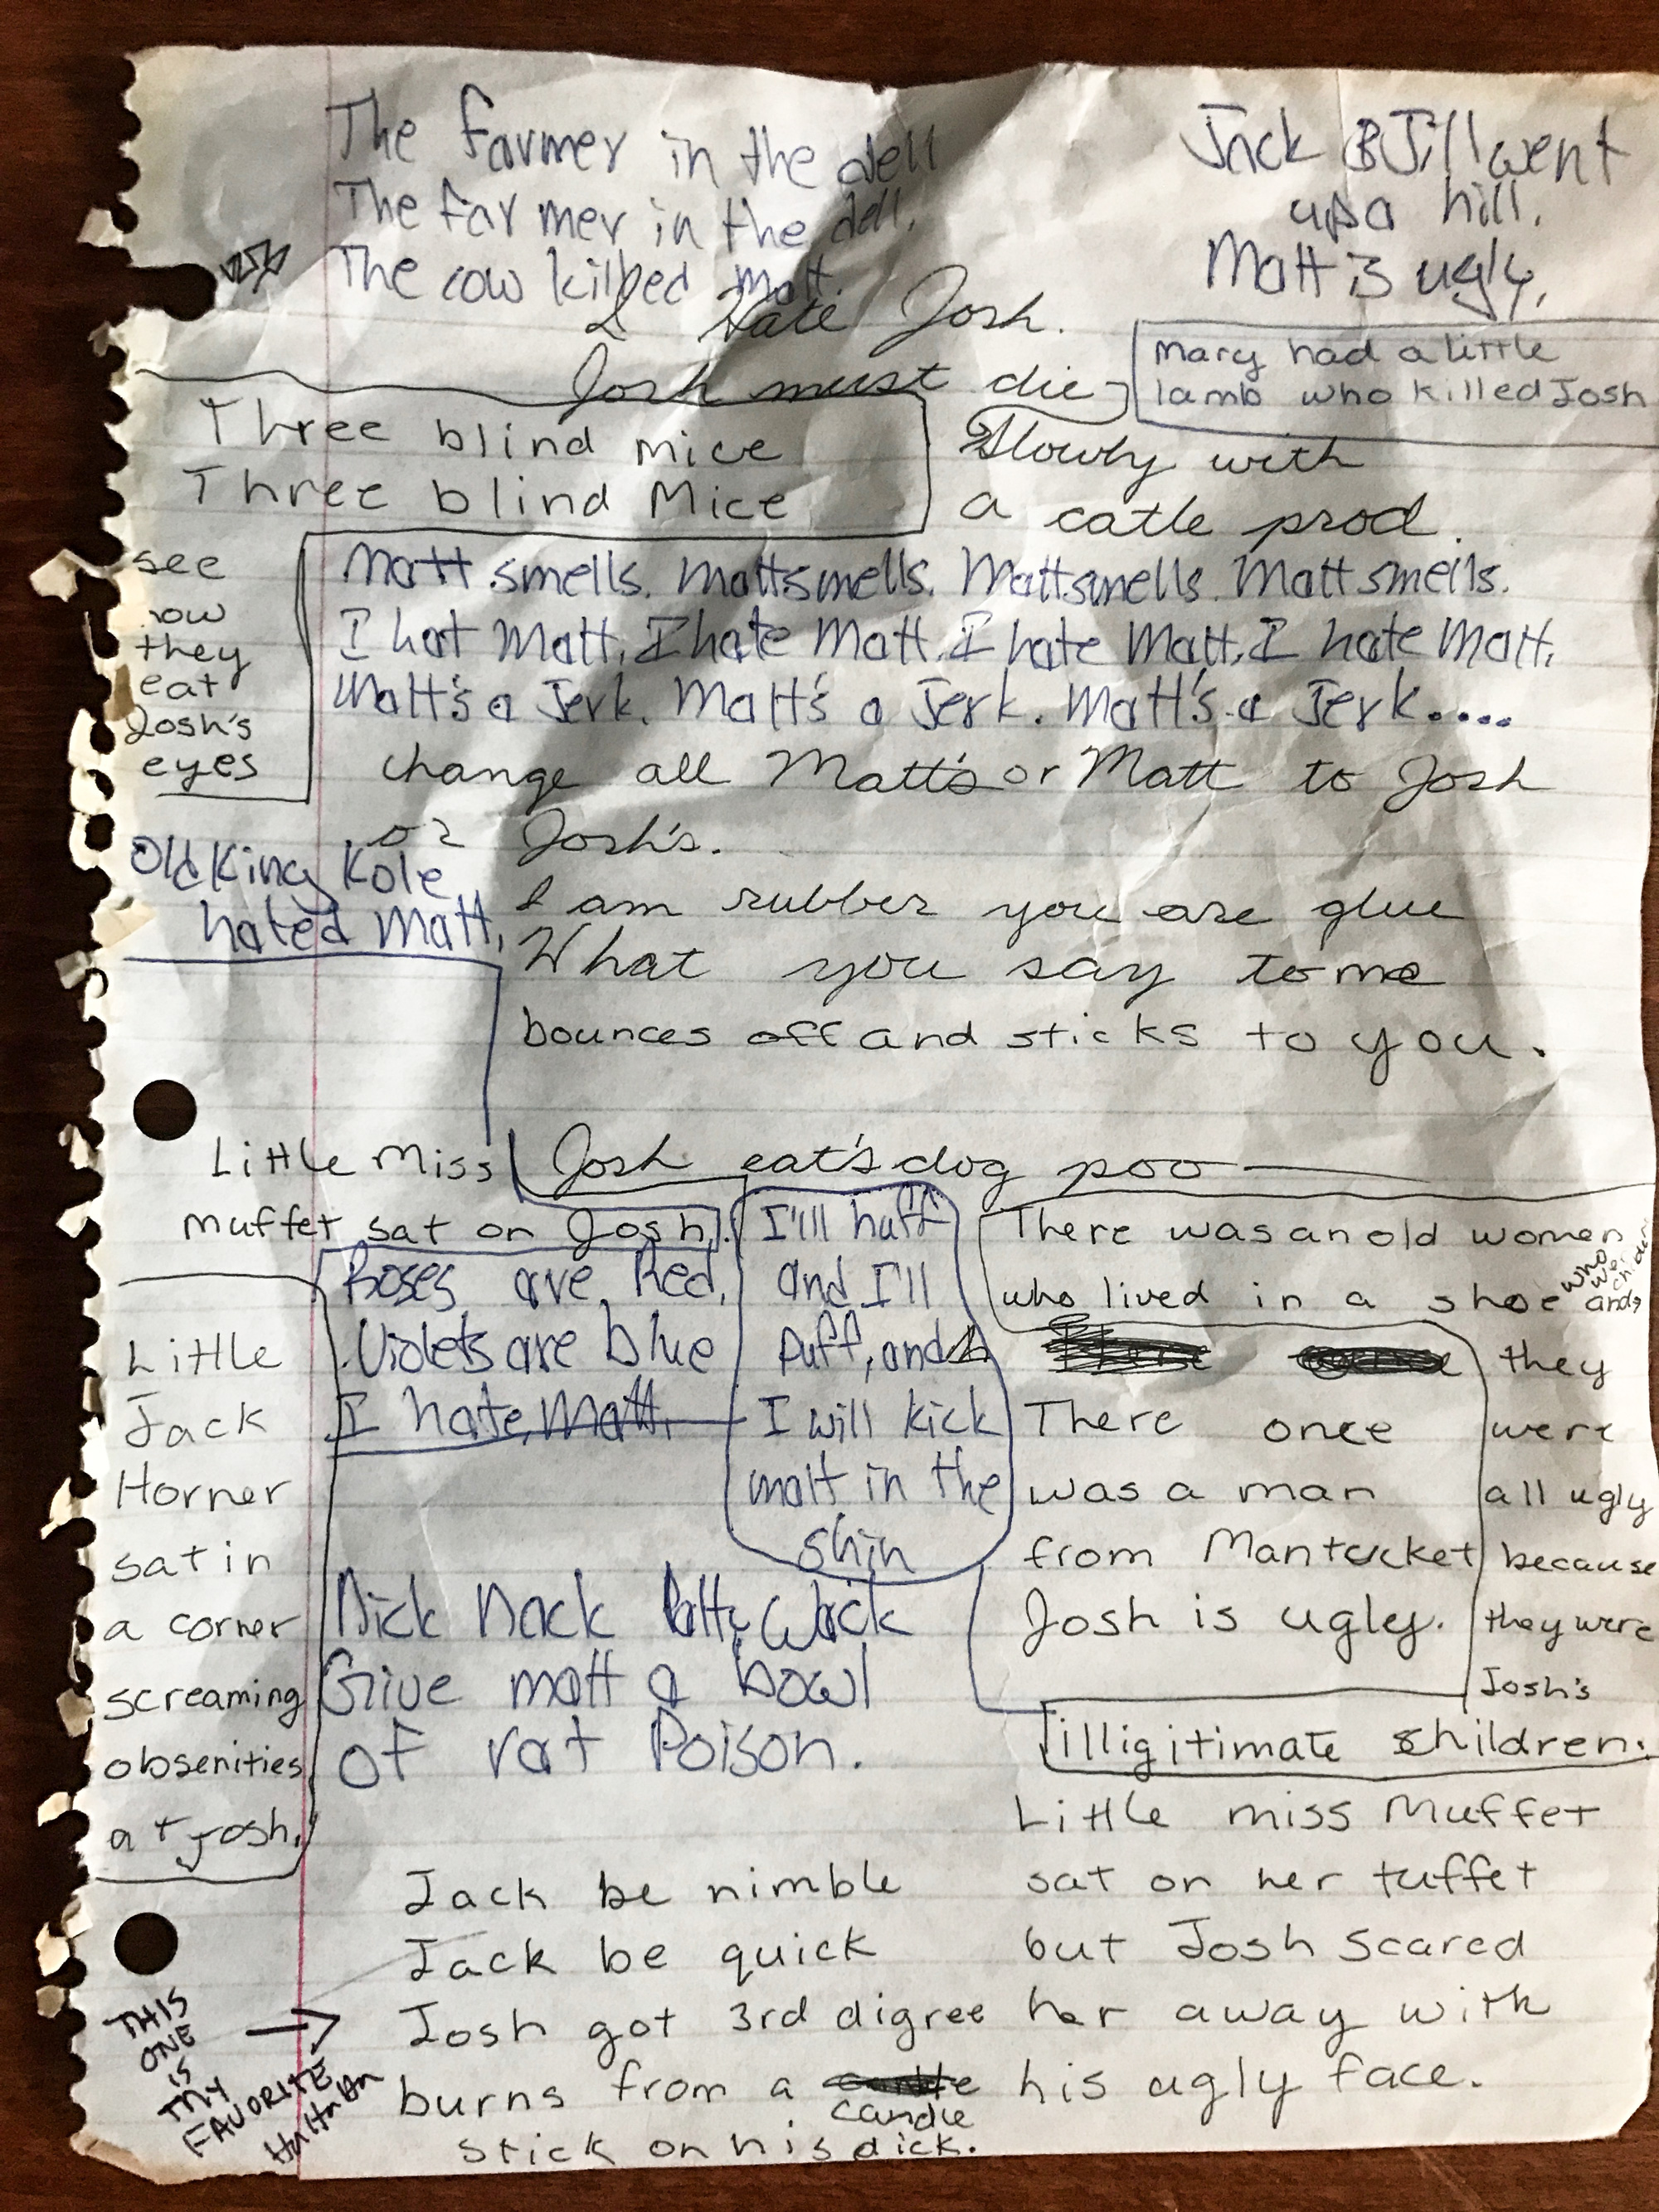 The farmer in the dell
The farmer in the dell.
The cow killed Matt.
Jack & Jill went
up a hill.
Matt is ugly.
I hate Josh.
Josh must die
Slowly with
a catle prod.
Mary had a little
lamb who killed Josh
Three blind mice
Three blind Mice
see
how
they
eat
Josh's
eyes
Matt smells. Matt smells. Matt smells. Matt smells.
I hat Matt, I hate Matt, I hate Matt, I hate Matt,
Matt's a Jerk. Matt's a Jerk. Matt's a Jerk.....
change all Matt's or Matt to Josh
or Josh's.
Old King Kole
hated Matt,
I am rubber you are glue
What you say to me
bounces off and sticks to you.
Little Miss
Muffet sat on Josh.
Josh eat's dog poo
Roses are Red,
Violets are blue
I hate, Matt.
I'll huff
and I'll
Puff, and
I will kick
matt in the
shin
There was an old women
who lived in a shoe
and
they
were
all ugly
because
they were
Josh's
illigitimate children.
There once
was a man
from Mantucket
Josh is ugly.
Little
Jack
Horner
sat in
a corner
screaming
obsenities
at Josh.
Nick Nack Patty Wack
Give matt a bowl
of rat Poison.
Little miss Muffet
sat on her tuffet
but Josh scared
her away with
his ugly face.
Jack be nimble
Jack be quick
Josh got 3rd digree
burns from a
candle
stick on his dick.
THIS
ONE
IS
MY
FAVORITE
HAHAHA